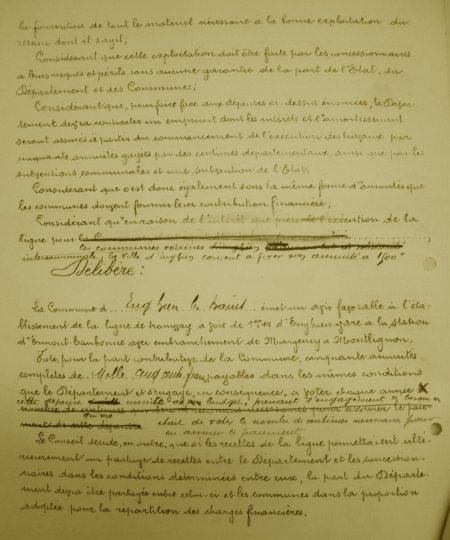 la fourniture de tout le matériel nécessaire à la bonne exploitation du
réseau dont il s'agit;
Considérant que cette exploitation doit être faite par les concessionnaires
à leurs risques et périls, sans aucune garantie de la part de l'Etat, du
Département et des Communes;
Considérant que, pour faire face aux dépenses ci-dessus énoncées, le Dépar-
tement devra contracter un emprunt dont les intérêts et l'amortissement
seront assurés à partir du commencement de l'exécution des travaux par
cinquante annuités gagées par des centimes départementaux, ainsi que par les
subventions communales et une subvention de l'Etat;
Considérant que c'est donc également sous la même forme d'annuités que
les communes doivent fournir leur contribution financière;
Considérant qu'en raison de l'intérêt que présente l'exécution de la
ligne pour
les communes voisines
intercommunale, la ville d'Enghien consent à fixer son annuité à 1500
Délibère:
La Commune d'Enghien les Bains émet un avis favorable à l'éta-
blissement de la ligne de tramway à voie de 1m44 d'Enghien-gare à la station
d'Ermont-Eaubonne avec embranchement de Margency à Montlignon.
Vote, pour la part contributive de la Commune, cinquante annuités
complètes de Mille cinq cents francs payables dans les mêmes conditions
que le Département et s'engage, en conséquence, à voter chaque année
cette dépense budget, prenant l'engagement
assurer le paie-
ment de cette dépense de voter le nombre de centimes nécessaires pour
en assurer le paiement
Le Conseil décide, en outre, que si les recettes de la ligne permettaient ulté-
rieurement un partage de recettes entre le Département et les concession-
naires dans les conditions déterminées entre eux, la part du Départe-
ment devra être partagée entre celui-ci et les communes dans la proportion
adoptée pour la répartition des charges financières.